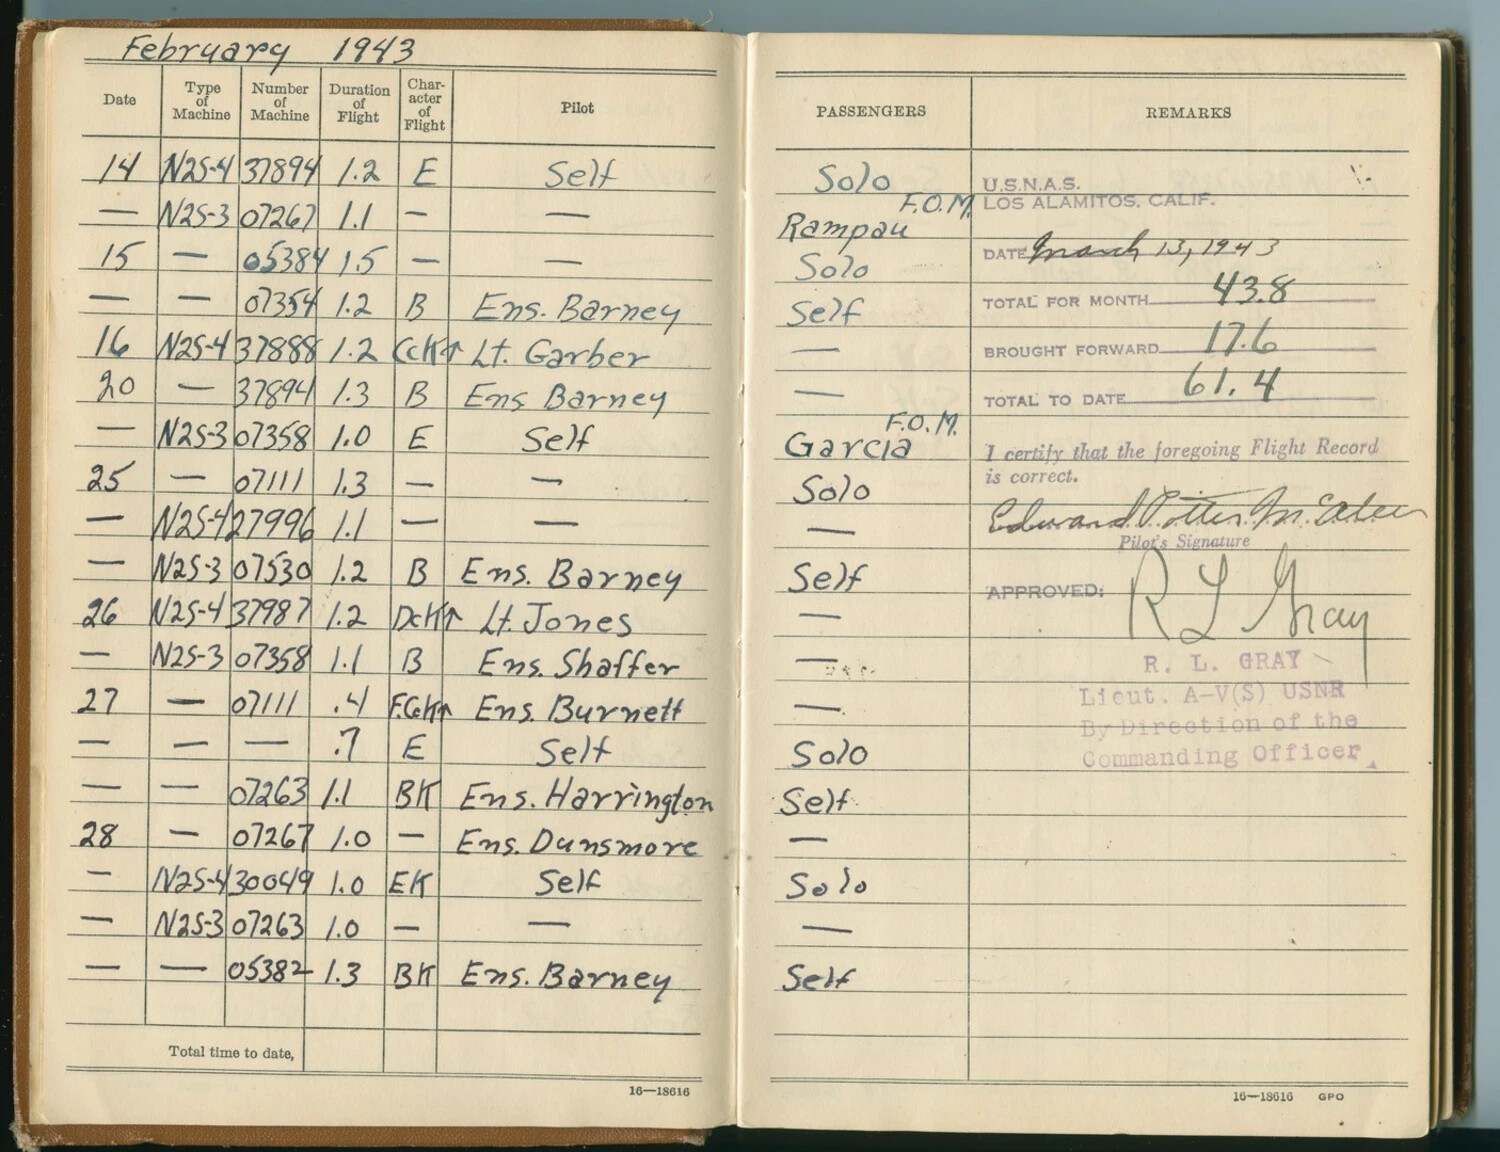 February 1943
Date Type of Machine Number of Machine Duration of Flight Character of Flight Pilot PASSENGERS REMARKS
14 N2S-4 37894 1.2 E Self Solo
— N2S-3 07267 1.1 — — Rampau F.O.M.
15 — 05384 1.5 — — Solo
— — 07354 1.2 B Ens. Barney Self
16 N2S-4 37888 1.2 CcK↑ Lt. Garber —
20 — 37894 1.3 B Ens Barney —
— N2S-3 07358 1.0 E Self Garcia F.O.M.
25 — 07111 1.3 — — Solo
— N2S-4 27996 1.1 — — —
— N2S-3 07530 1.2 B Ens. Barney Self
26 N2S-4 37987 1.2 DcK↑ Lt. Jones —
— N2S-3 07358 1.1 B Ens. Shaffer —
27 — 07111 .4 F.CcK↑ Ens. Burnett —
— — — .7 E Self Solo
— — 07263 1.1 BK Ens. Harrington Self
28 — 07267 1.0 — Ens. Dunsmore —
— N2S-4 30049 1.0 EK Self Solo
— N2S-3 07263 1.0 — — —
— — 05382 1.3 BK Ens. Barney Self
Total time to date,
16—18616
U.S.N.A.S.
LOS ALAMITOS, CALIF.
DATE March 13, 1943
TOTAL FOR MONTH 43.8
BROUGHT FORWARD 17.6
TOTAL TO DATE 61.4
I certify that the foregoing Flight Record
is correct.
Edward Potter McAteer
Pilot's Signature
APPROVED: R L Gray
R. L. GRAY
Lieut. A-V(S) USNR
By Direction of the
Commanding Officer
16—18616 GPO